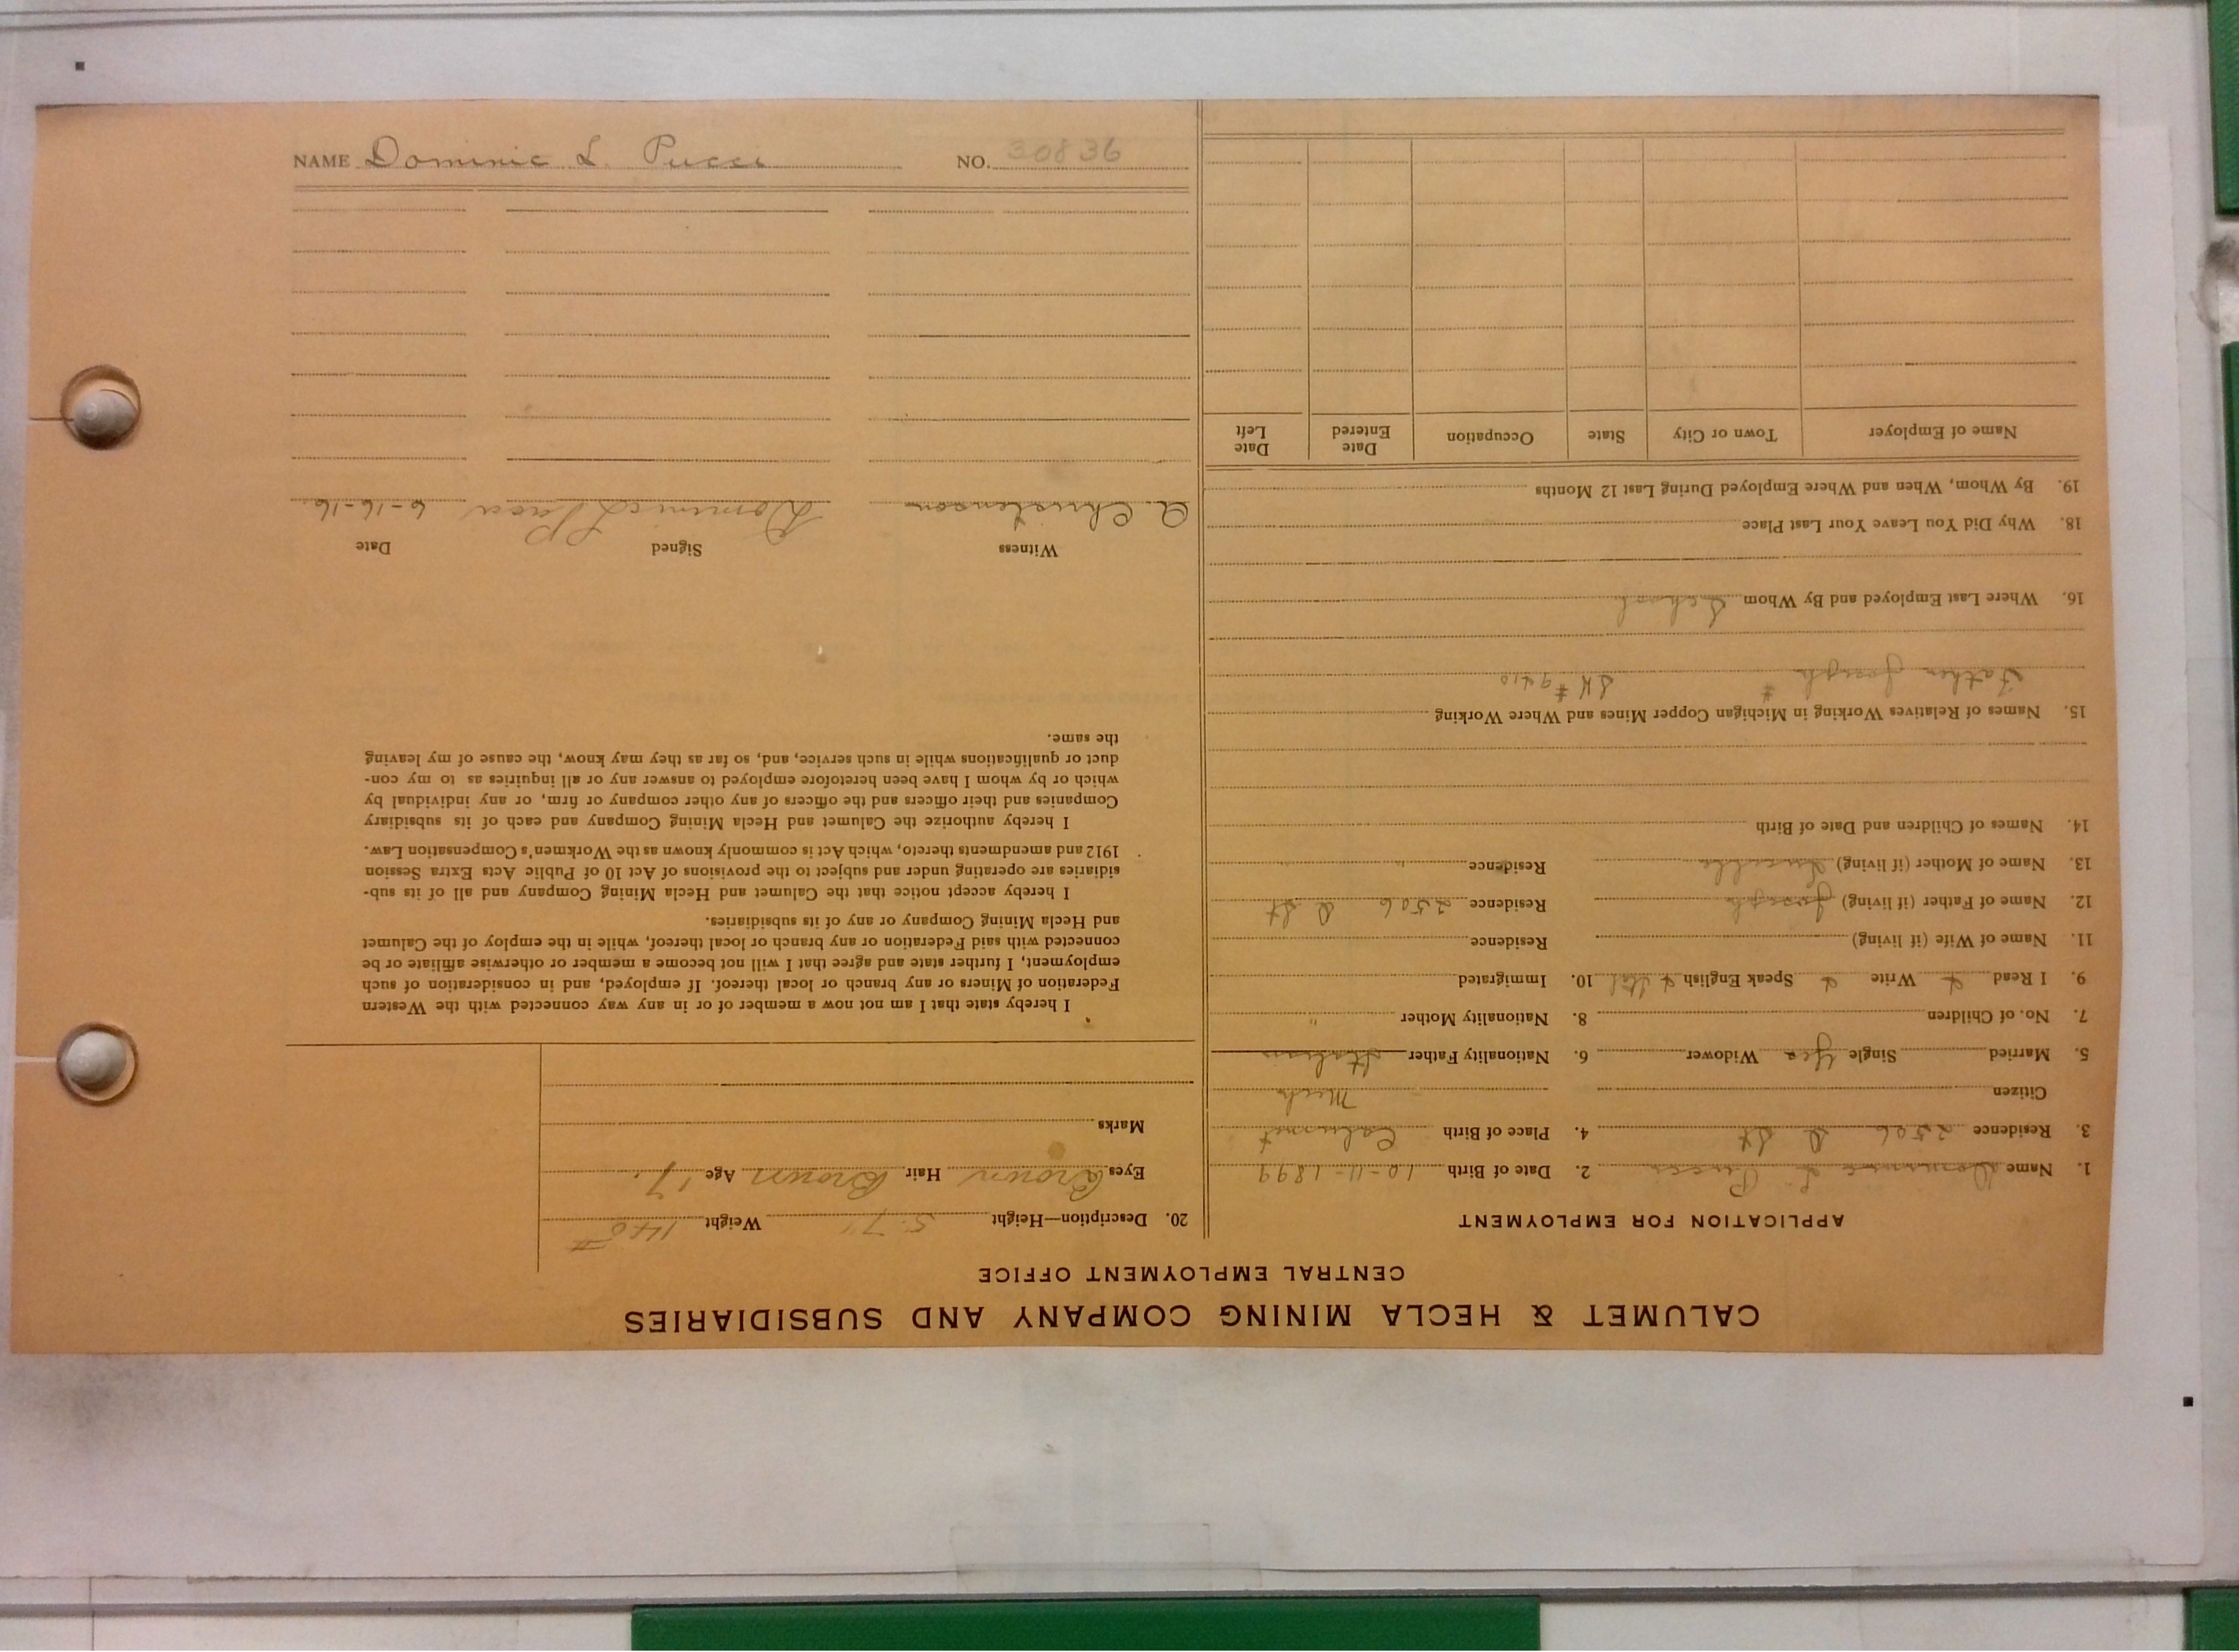 NAME Dominic L. Pucci NO. 30836
CALUMET & HECLA MINING COMPANY AND SUBSIDIARIES
CENTRAL EMPLOYMENT OFFICE
APPLICATION FOR EMPLOYMENT
1. Name Dominic L. Pucci 2. Date of Birth 10-11-1899
3. Residence 2506 D St 4. Place of Birth Calumet
Citizen Mich
5. Married Single Yes Widower 6. Nationality Father Italian
7. No. of Children 8. Nationality Mother "
9. I Read & Write & Speak English & Ital 10. Immigrated
11. Name of Wife (if living) Residence
12. Name of Father (if living) Joseph Residence 2506 D St
13. Name of Mother (if living) Residence " "
14. Names of Children and Date of Birth
15. Names of Relatives Working in Michigan Copper Mines and Where Working
Father Joseph # SH # 9410
16. Where Last Employed and By Whom School
18. Why Did You Leave Your Last Place
19. By Whom, When and Where Employed During Last 12 Months
Name of Employer Town or City State Occupation Date Entered Date Left
20. Description—Height 5' 7" Weight 140 #
Eyes Brown Hair Brown Age 17
Marks
I hereby state that I am not now a member of or in any way connected with the Western
Federation of Miners or any branch or local thereof. If employed, and in consideration of such
employment, I further state and agree that I will not become a member or otherwise affiliate or be
connected with said Federation or any branch or local thereof, while in the employ of the Calumet
and Hecla Mining Company or any of its subsidiaries.
I hereby accept notice that the Calumet and Hecla Mining Company and all of its sub-
sidiaries are operating under and subject to the provisions of Act 10 of Public Acts Extra Session
1912 and amendments thereto, which Act is commonly known as the Workmen's Compensation Law.
I hereby authorize the Calumet and Hecla Mining Company and each of its subsidiary
Companies and their officers and the officers of any other company or firm, or any individual by
which or by whom I have been heretofore employed to answer any or all inquiries as to my con-
duct or qualifications while in such service, and, so far as they may know, the cause of my leaving
the same.
Witness Signed Date
A. Christenson Dominic L Pucci 6-16-16